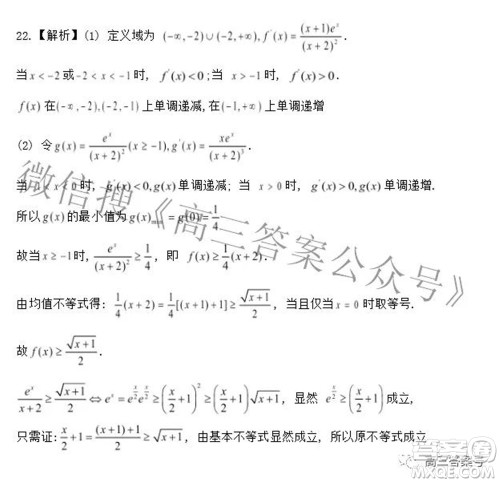 22.【解析】(1) 定义域为 (-∞,-2)∪(-2,+∞), f'(x)=\frac{(x+1)e^x}{(x+2)^2}.
当 x<-2 或 -2<x<-1 时, f'(x)<0; 当 x>-1 时, f'(x)>0.
f(x) 在 (-∞,-2),(-2,-1) 上单调递减, 在 (-1,+∞) 上单调递增
(2) 令 g(x)=\frac{e^x}{(x+2)^2}(x≥-1), g'(x)=\frac{xe^x}{(x+2)^3}.
x<0 时, g'(x)<0, g(x) 单调递减; 当 x>0 时, g'(x)>0, g(x) 单调递增.
所以 g(x) 的最小值为 g(x)_{min}=g(0)=\frac{1}{4}
故当 x≥-1 时, \frac{e^x}{(x+2)^2}≥\frac{1}{4}, 即 f(x)≥\frac{1}{4}(x+2).
由均值不等式得: \frac{1}{4}(x+2)=\frac{1}{4}[(x+1)+1]≥\frac{\sqrt{x+1}}{2}, 当且仅当 x=0 时取等号.
故 f(x)≥\frac{\sqrt{x+1}}{2}.
\frac{e^x}{x+2}≥\frac{\sqrt{x+1}}{2}⇔e^x=e^{\frac{x}{2}}e^{\frac{x}{2}}≥(\frac{x}{2}+1)^2≥(\frac{x}{2}+1)\sqrt{x+1}, 显然 e^{\frac{x}{2}}≥\frac{x}{2}+1 成立,
只需证: \frac{x}{2}+1=\frac{(x+1)+1}{2}≥\sqrt{x+1}, 由基本不等式显然成立, 所以原不等式成立
微信搜《高三答案公众号》
高三答案号
答案圈
MXQE.COM